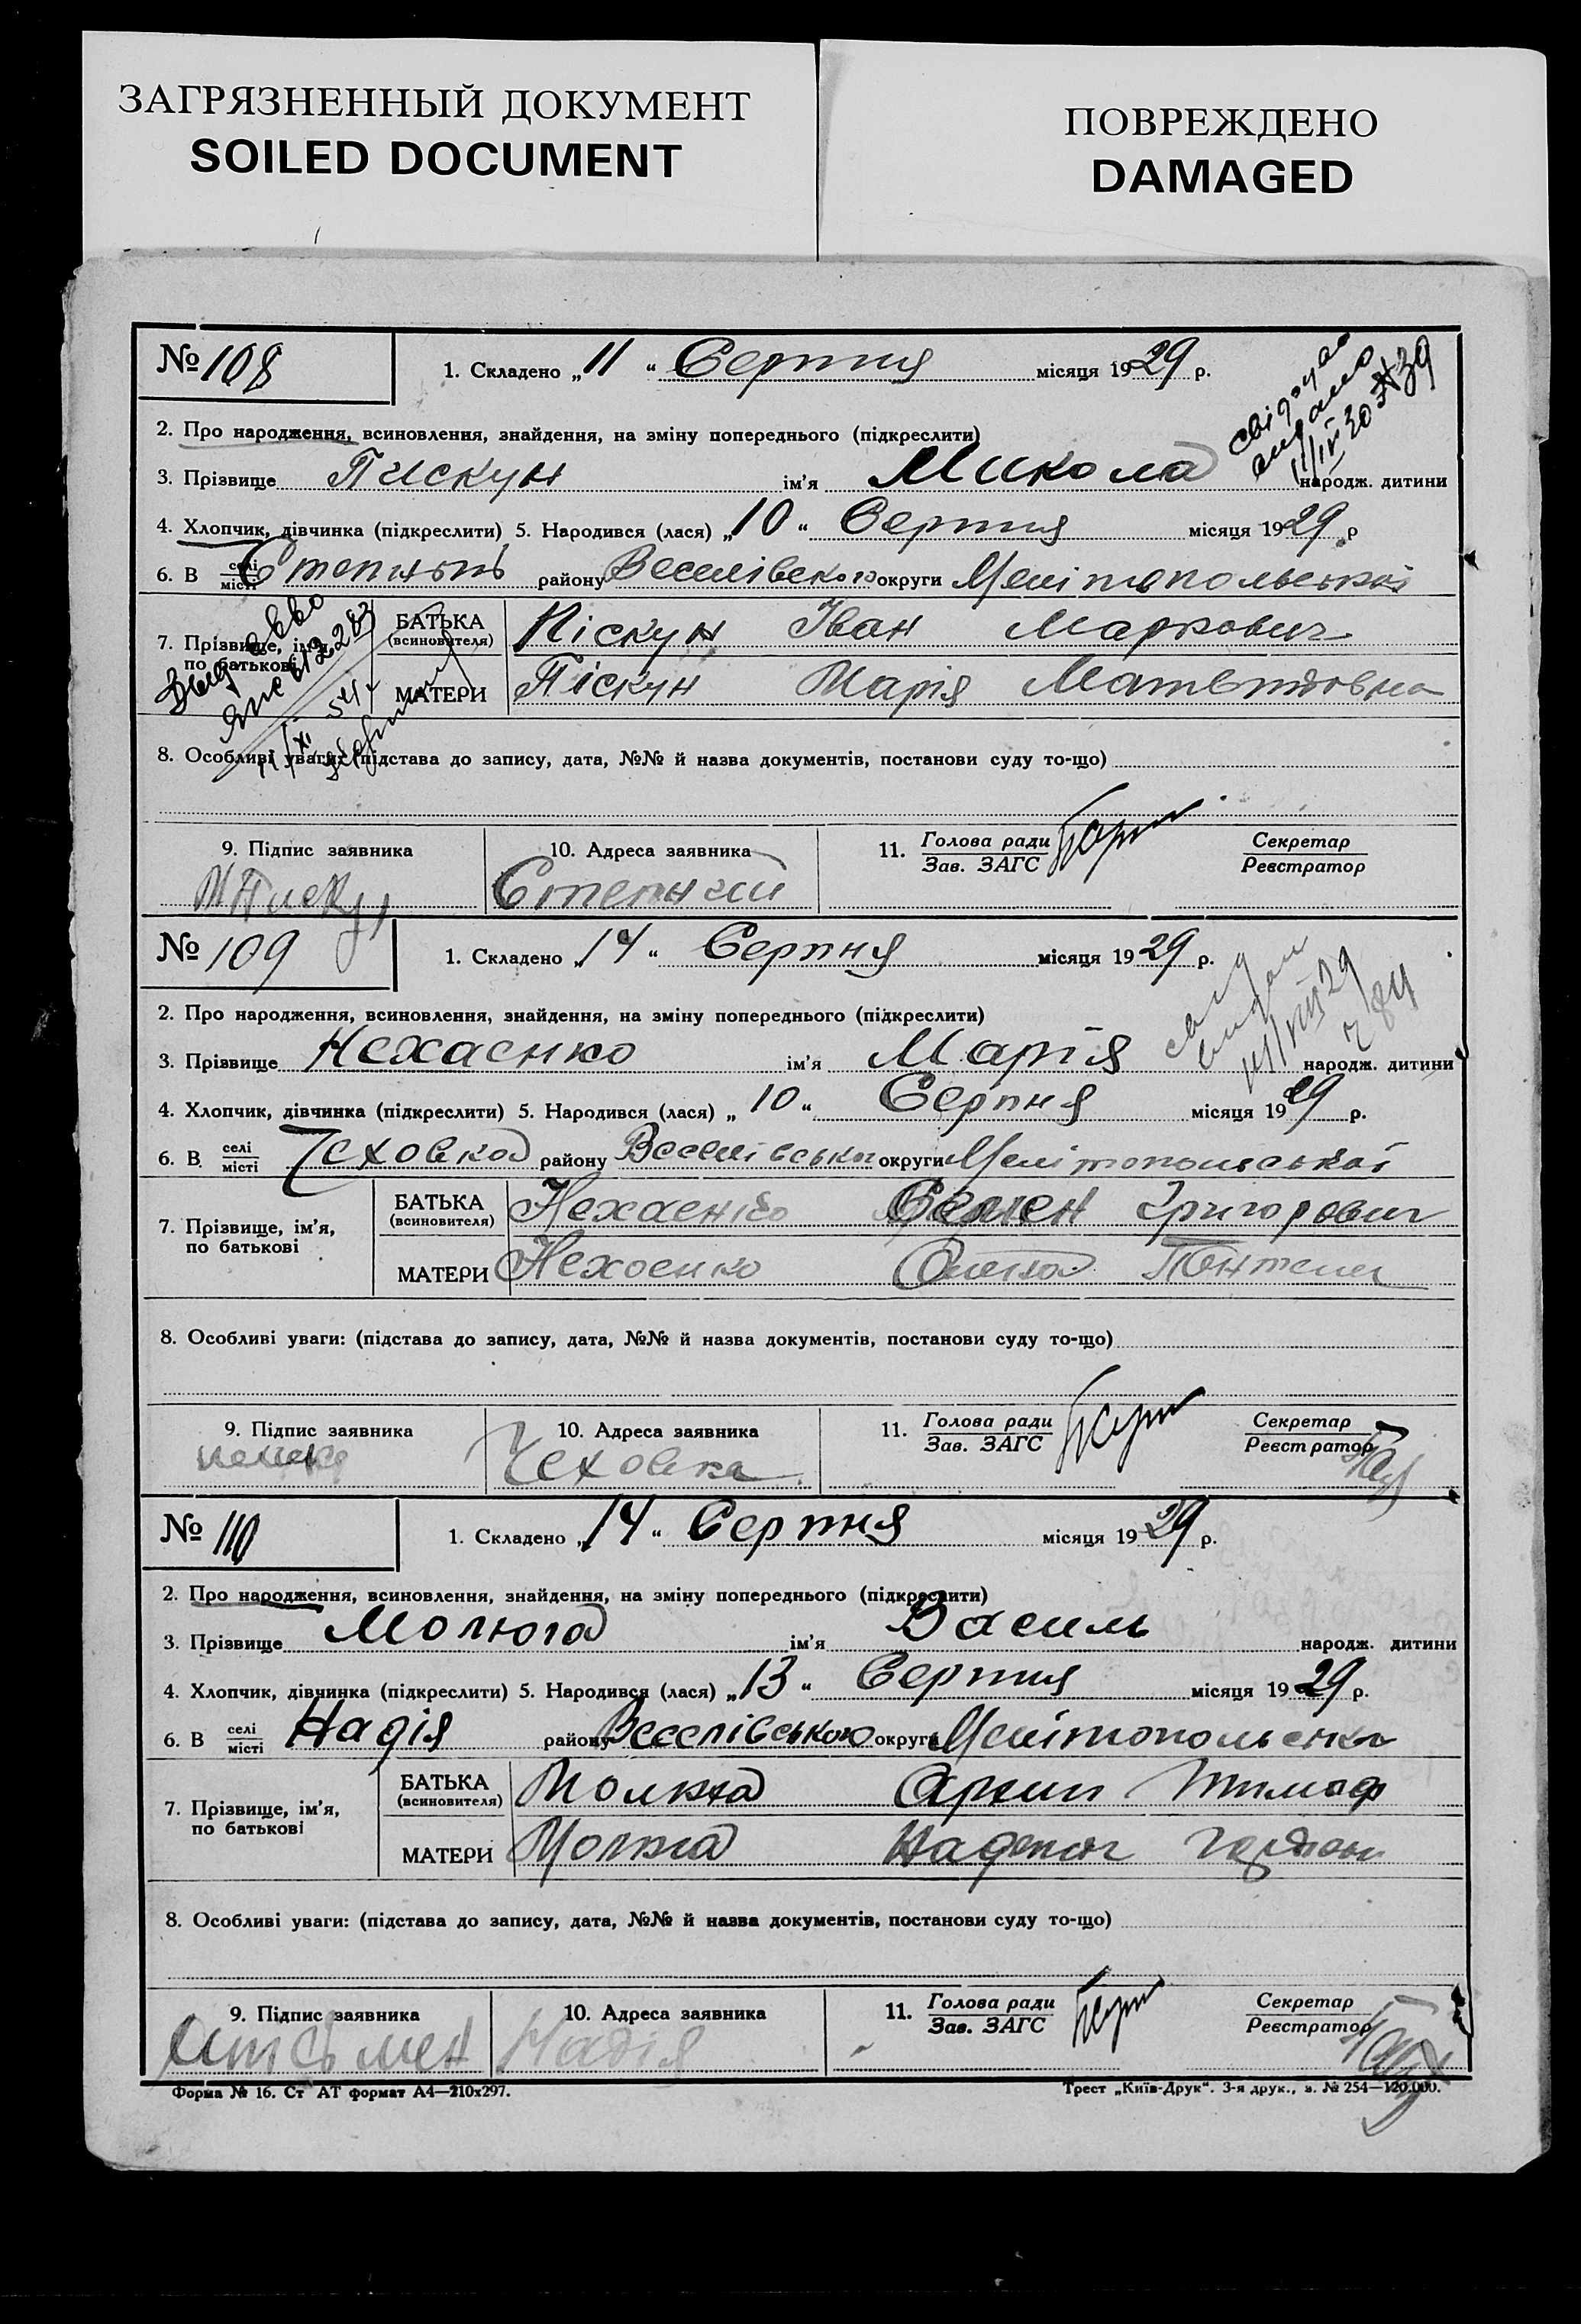 ЗАГРЯЗНЕННЫЙ ДОКУМЕНТ
SOILED DOCUMENT
ПОВРЕЖДЕНО
DAMAGED
№ 108
1. Складено „11“ Серпня місяця 1929 р.
2. Про народження, всиновлення, знайдення, на зміну попереднього (підкреслити)
3. Прізвище Пискун ім'я Микола народж. дитини
4. Хлопчик, дівчинка (підкреслити) 5. Народився (лася) „10“ Серпня місяця 1929 р
6. В селі місті району Веселівского округи Мелітопольської
7. Прізвище, ім'я, по батькові
БАТЬКА (всиновителя) Піскун Іван Маркович
МАТЕРИ Піскун Марія
8. Особливі уваги: (підстава до запису, дата, №№ й назва документів, постанови суду то-що)
9. Підпис заявника
10. Адреса заявника
11. Голова ради Зав. ЗАГС
Секретар Реєстратор
№ 109
1. Складено „14“ Серпня місяця 1929 р.
2. Про народження, всиновлення, знайдення, на зміну попереднього (підкреслити)
3. Прізвище Нехаєнко ім'я Марія народж. дитини
4. Хлопчик, дівчинка (підкреслити) 5. Народився (лася) „10“ Серпня місяця 1929 р.
6. В селі місті Чеховка району Веселівського округи Мелітопольської
7. Прізвище, ім'я, по батькові
БАТЬКА (всиновителя) Нехаєнко Семен Григорович
МАТЕРИ Нехаенко
8. Особливі уваги: (підстава до запису, дата, №№ й назва документів, постанови суду то-що)
9. Підпис заявника
10. Адреса заявника Чеховка
11. Голова ради Зав. ЗАГС
Секретар Реєстратор
№ 110
1. Складено „14“ Серпня місяця 1929 р.
2. Про народження, всиновлення, знайдення, на зміну попереднього (підкреслити)
3. Прізвище Молюга ім'я Василь народж. дитини
4. Хлопчик, дівчинка (підкреслити) 5. Народився (лася) „13“ Серпня місяця 1929 р.
6. В селі місті Надія району Веселівського округи
7. Прізвище, ім'я, по батькові
БАТЬКА (всиновителя) Архип Тимоф
МАТЕРИ
8. Особливі уваги: (підстава до запису, дата, №№ й назва документів, постанови суду то-що)
9. Підпис заявника
10. Адреса заявника Надія
11. Голова ради Зав. ЗАГС
Секретар Реєстратор
Форма № 16. Ст АТ формат А4—210х297.
Трест „Київ-Друк“. 3-я друк., з. № 254—120.000.